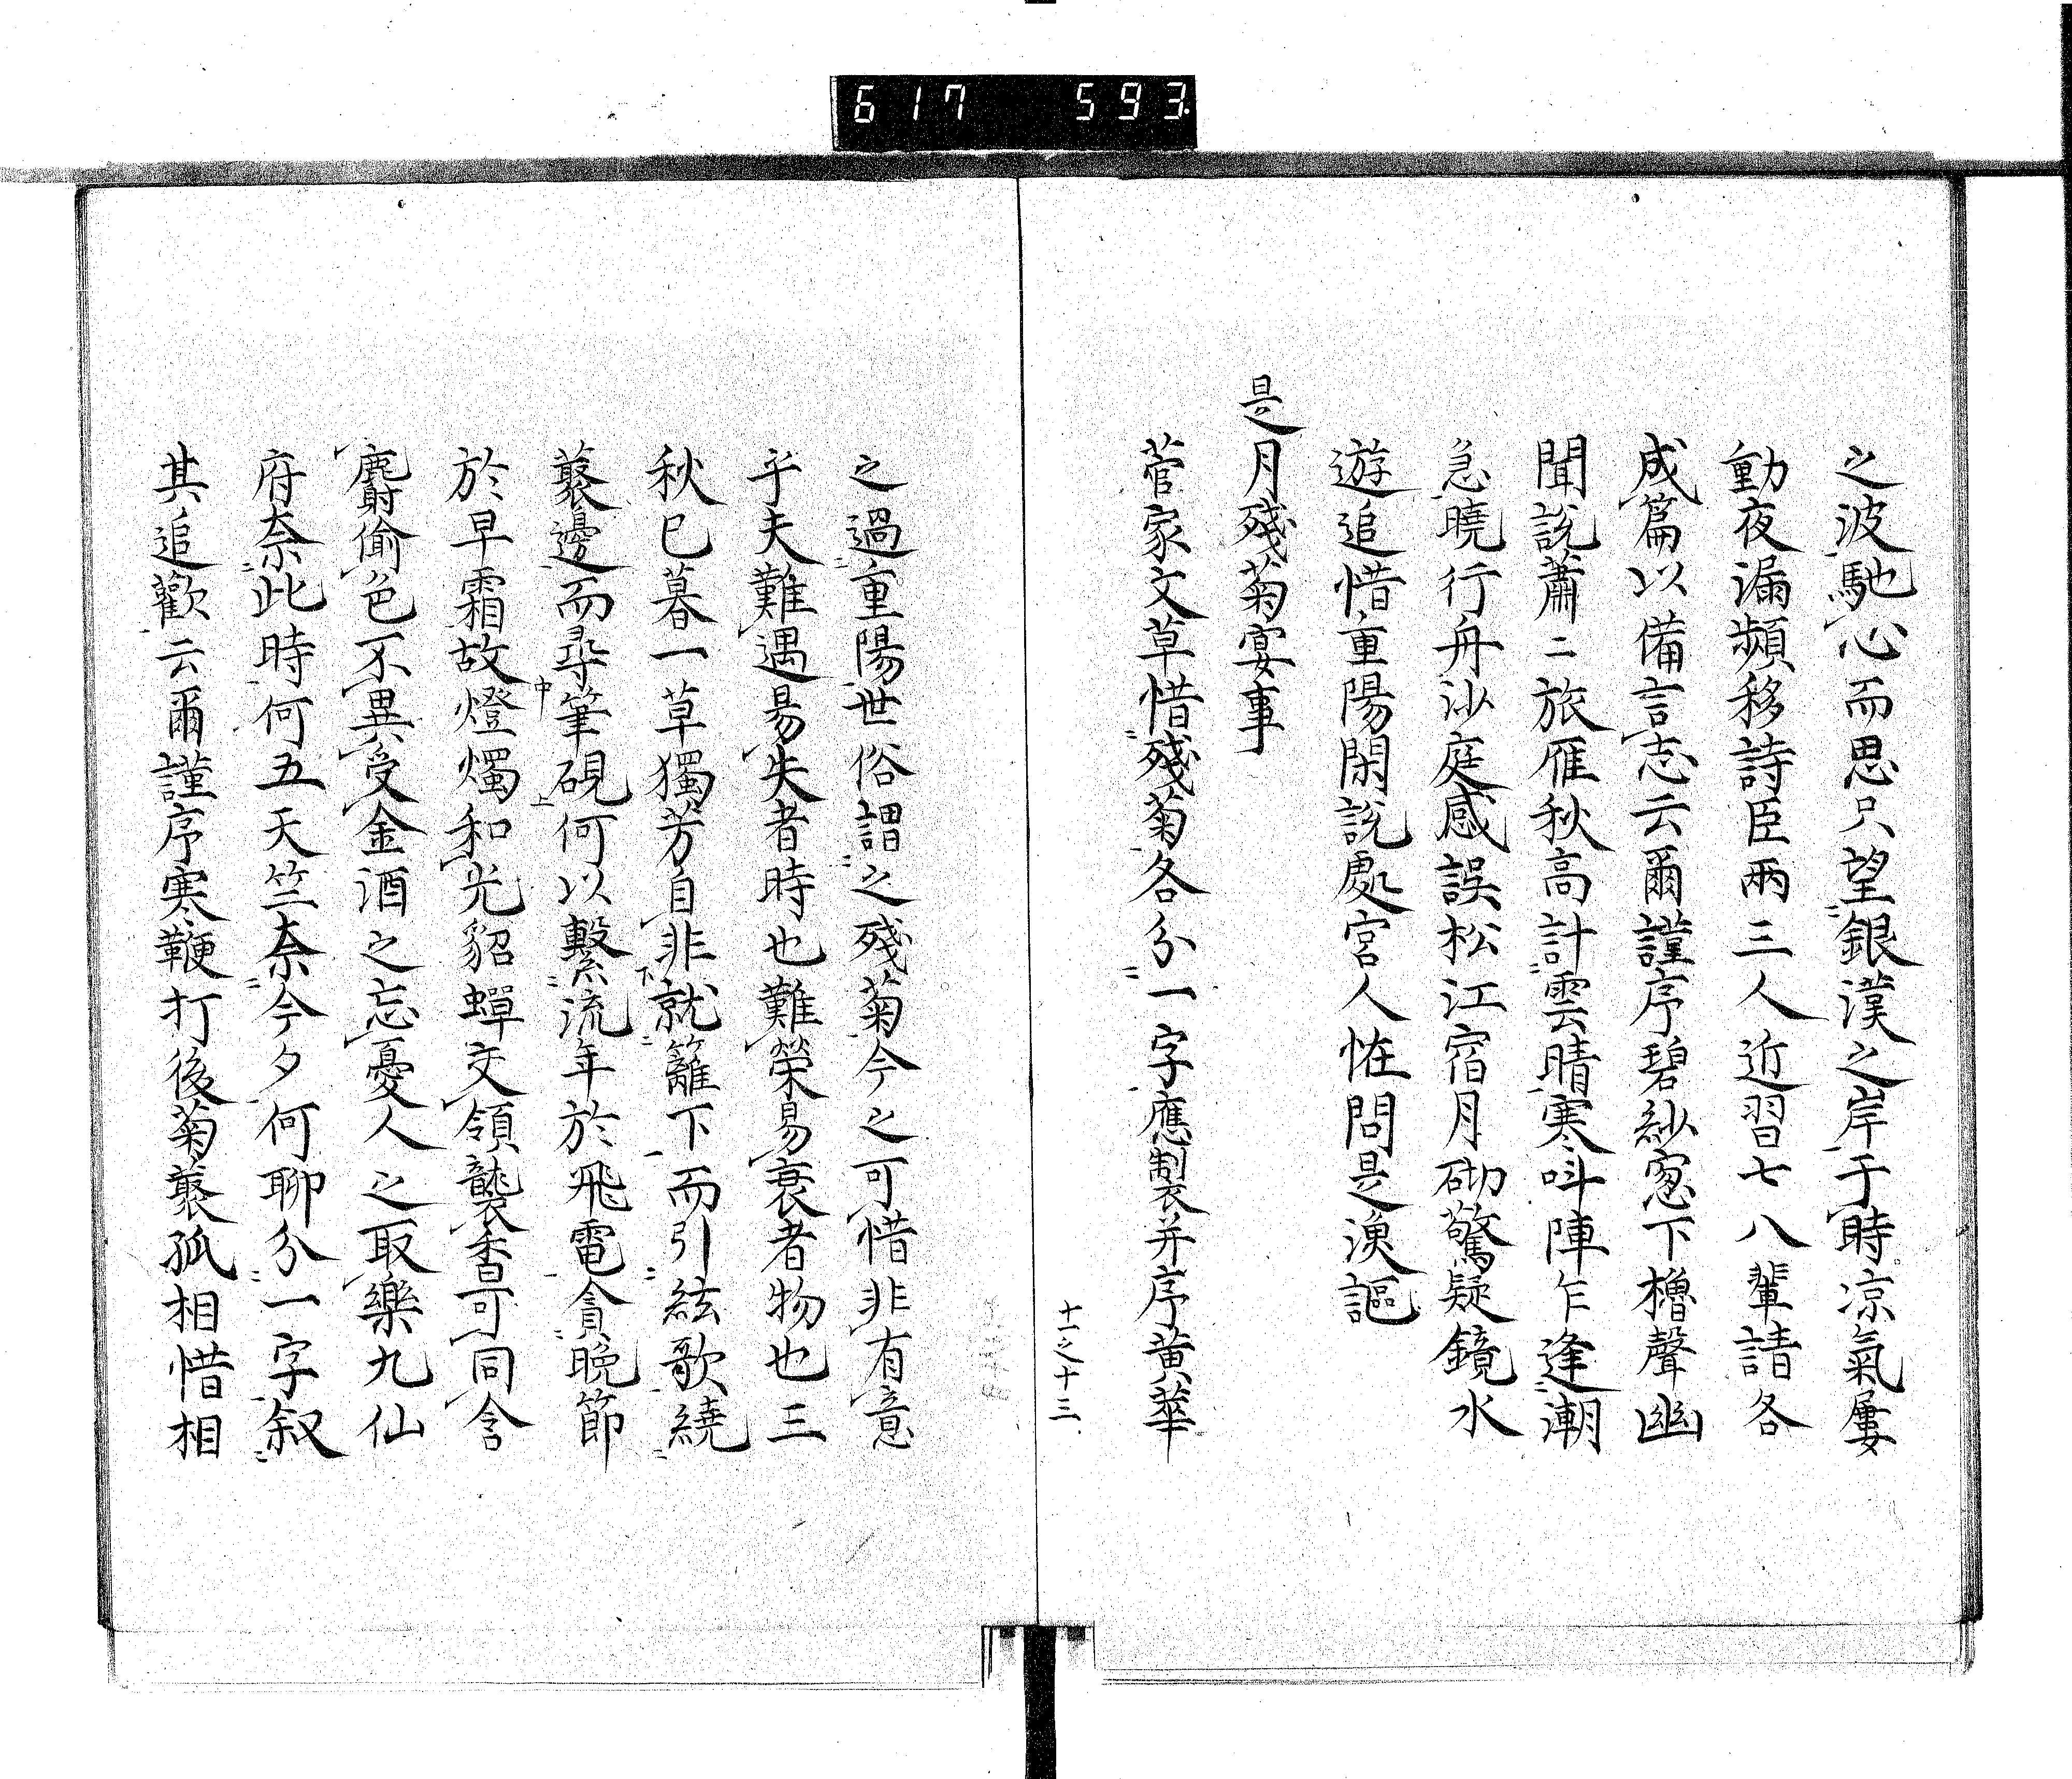 617 593
之波馳心而思只望銀漢之岸于時涼氣屢
動夜漏頻移詩臣兩三人近習七八輩請各
成篇以備言志云爾謹序碧紗窓下櫓聲幽
聞說蕭二旅雁秋高計雲晴寒叫陣乍逢潮
急曉行舟沙庭感誤松江宿月砌驚疑鏡水
遊追惜重陽閑說處宮人恠問是漁謳
是月殘菊宴事
菅家文草惜殘菊各分一字應製并序黃華
十一之十三
之過重陽世俗謂之殘菊今之可惜非有意
乎夫難遇易失者時也難榮易衰者物也三
秋已暮一草獨芳自非就籬下而引絃歌繞
藂邊而尋筆硯何以繫流年於飛電貪晚節
於早霜故燈燭和光貂蟬交領襲香可同含
麝偷色不異受金酒之忘憂人之取樂九仙
府奈此時何五天竺奈今夕何聊分一字叙
其追歡云爾謹序寒鞭打後菊藂孤相惜相